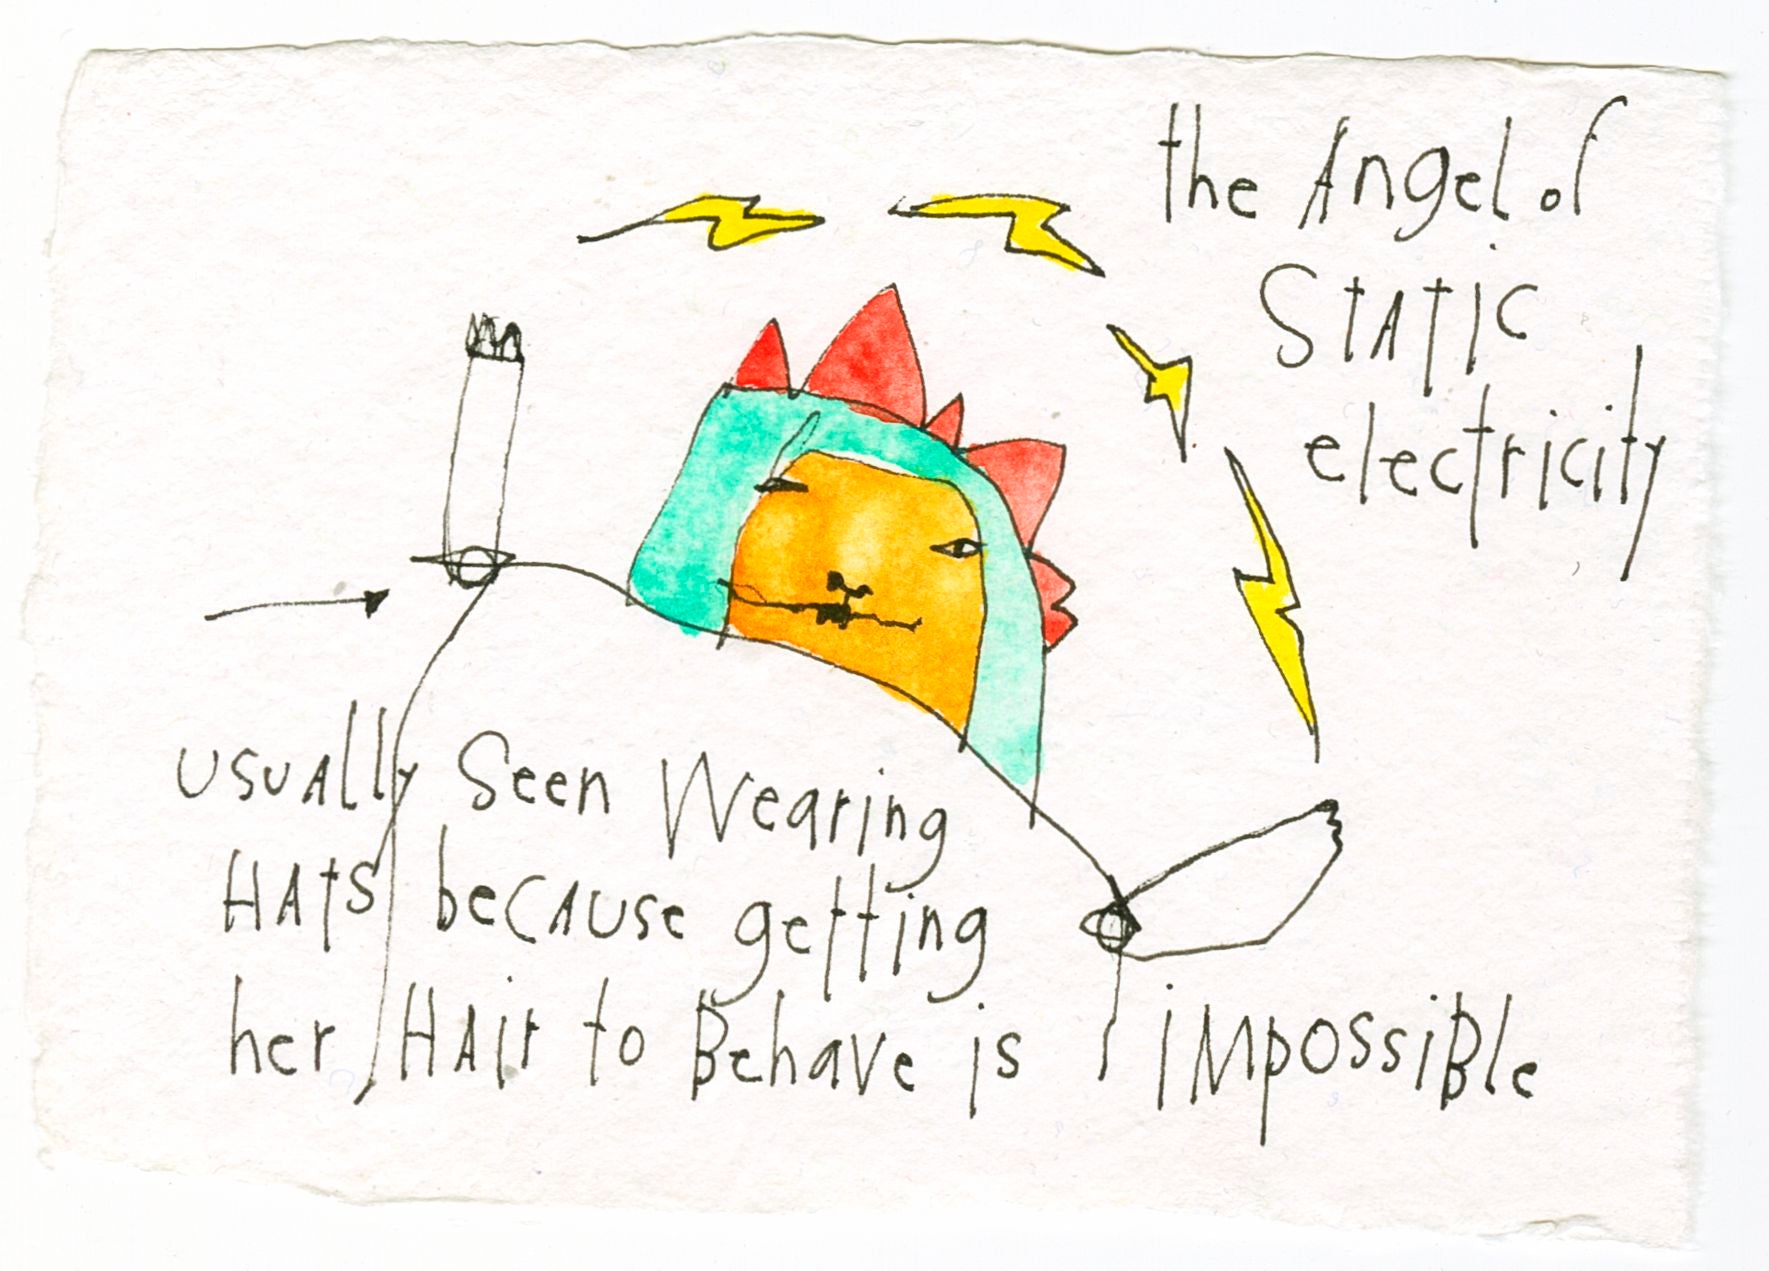 the Angel of
STATIC
electricity
usually Seen Wearing
HATS because getting
her HAir to Behave is iMpossiBle